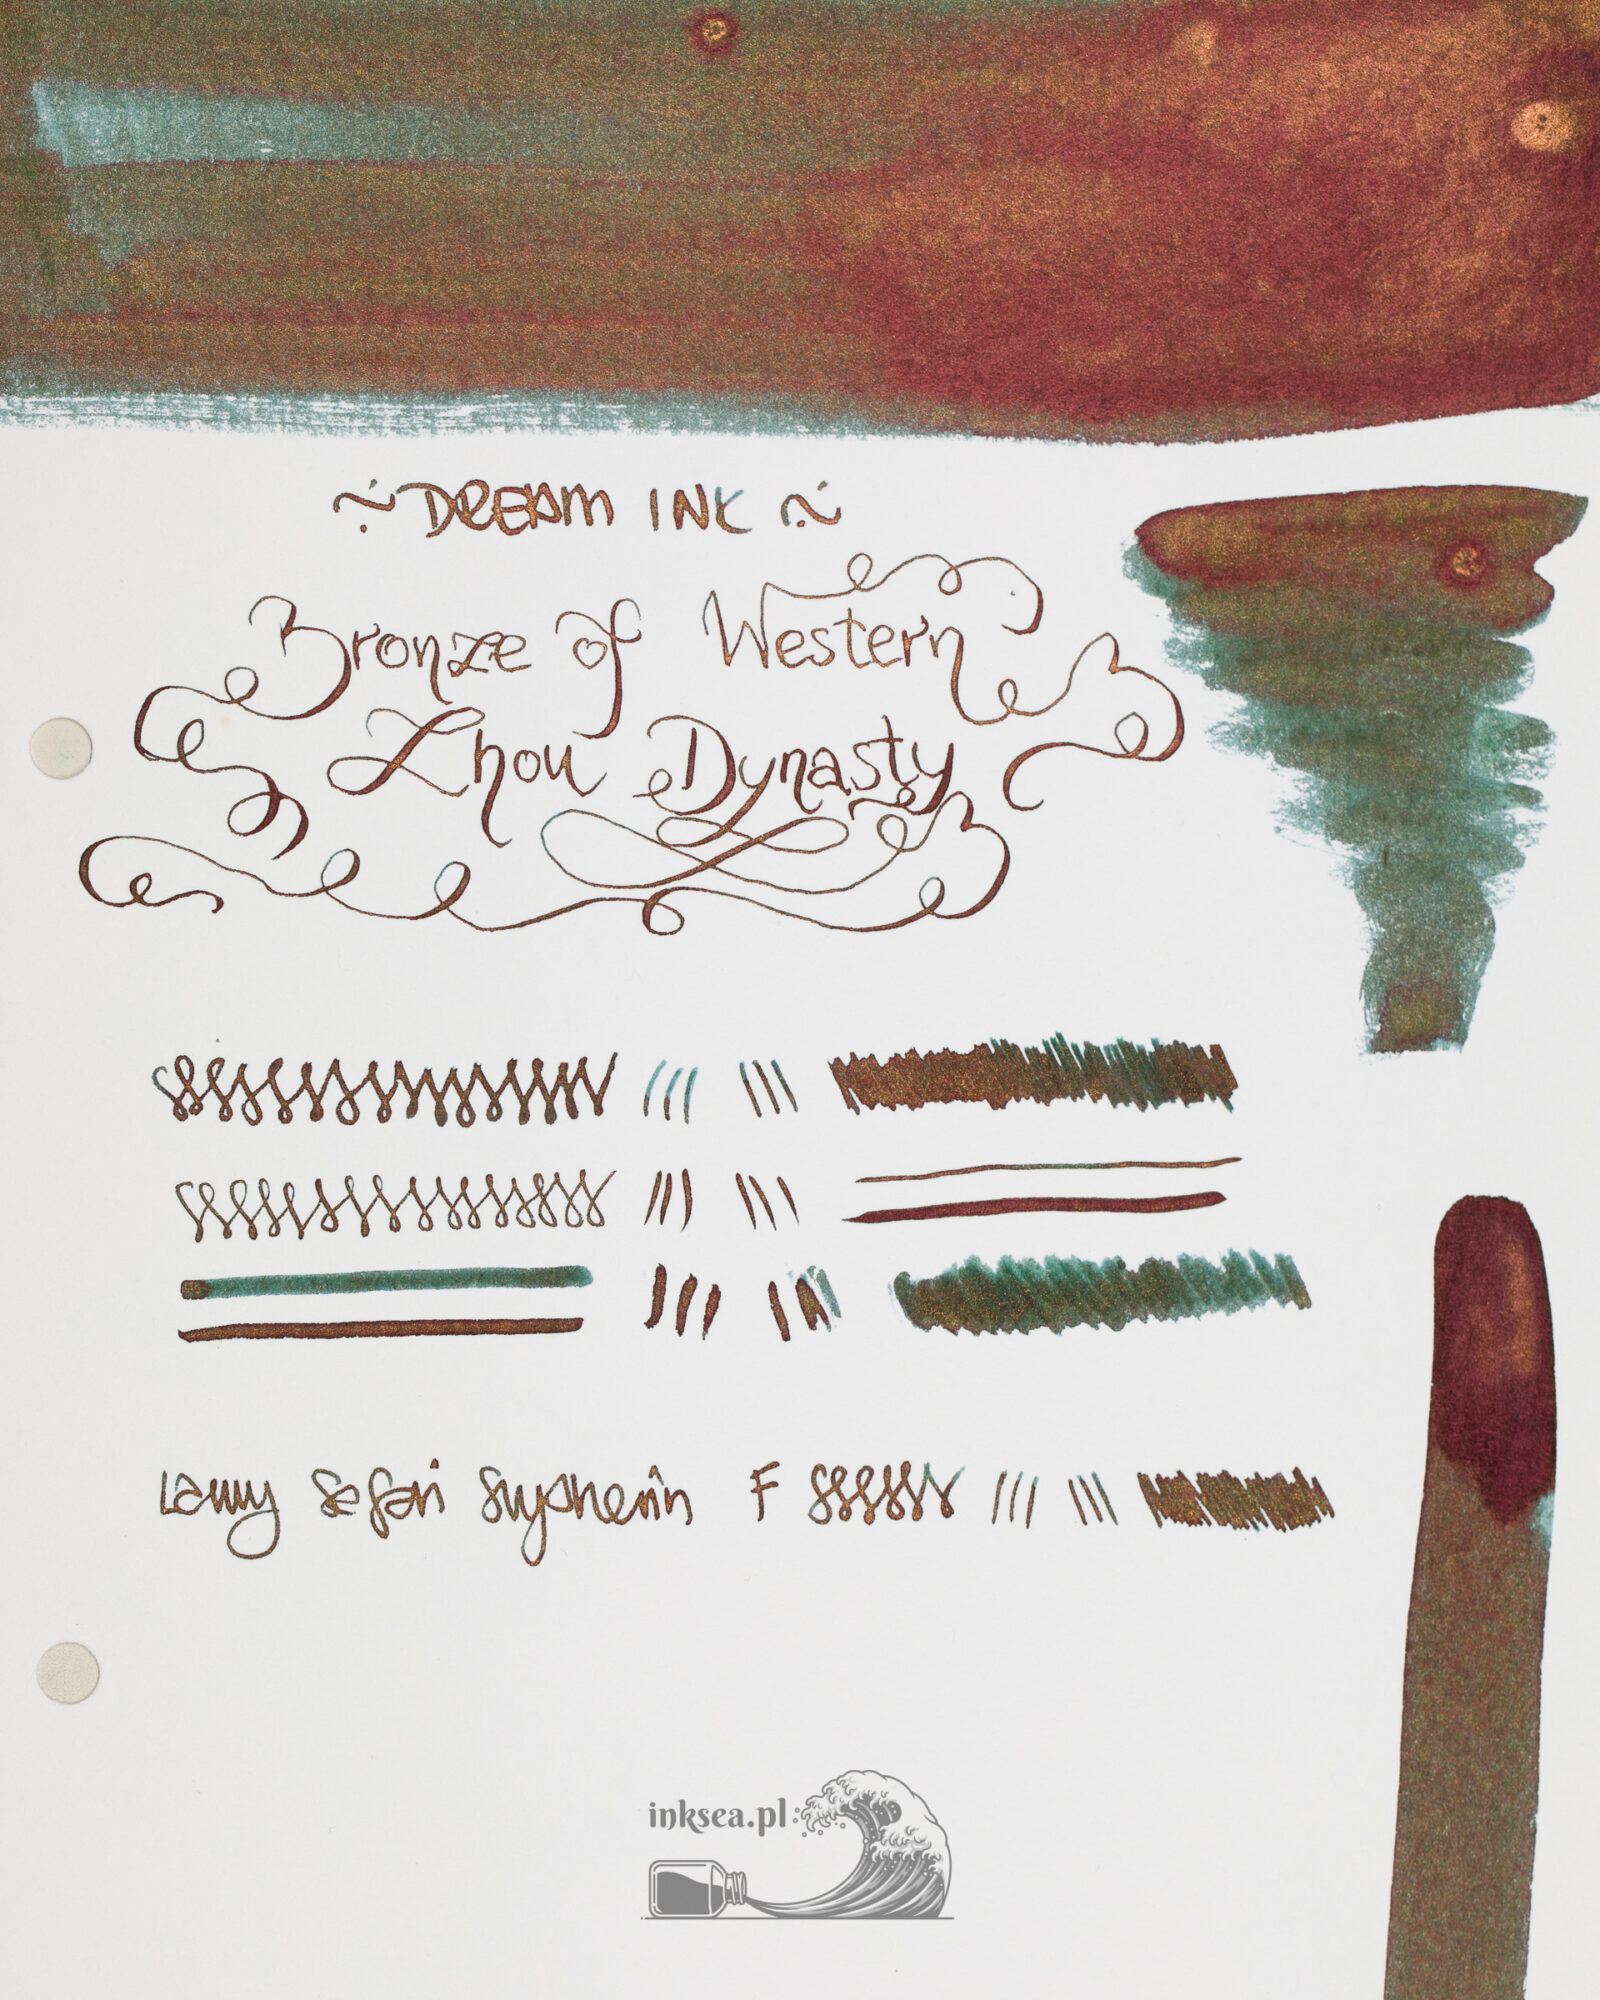 ~ DREAM INK ~
Bronze of Western
Zhou Dynasty
Lamy Safari Slytherin F
inksea.pl